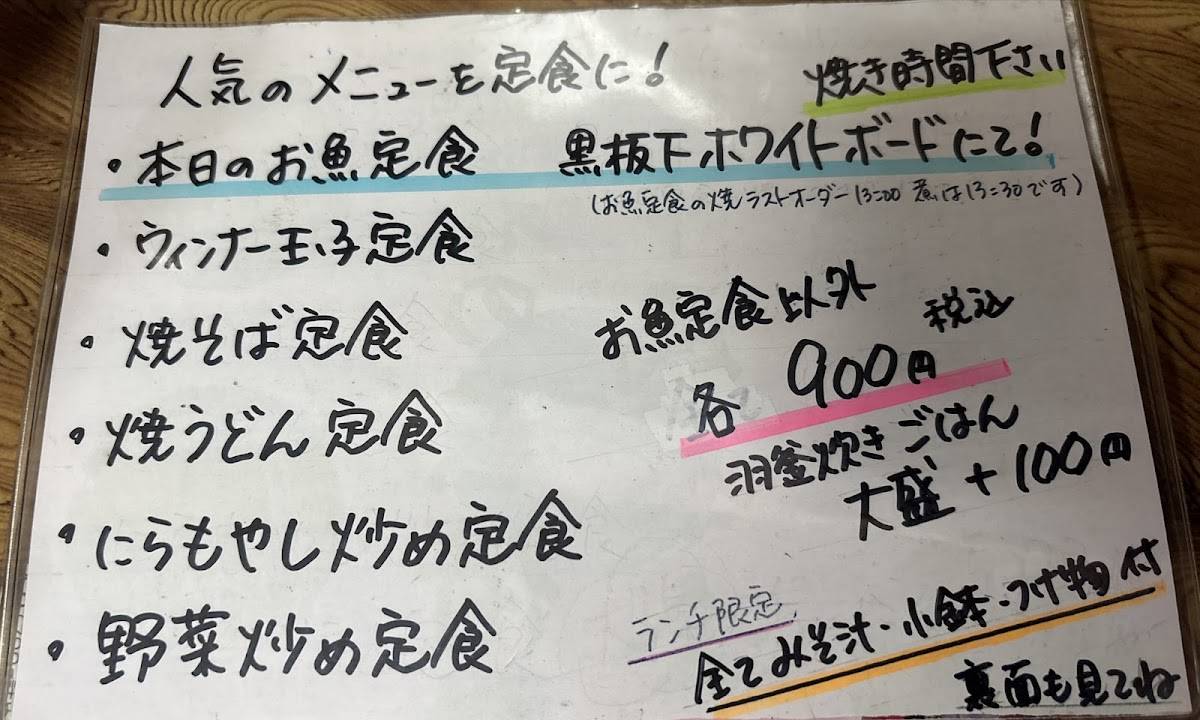 人気のメニューを定食に!
焼き時間下さい
・本日のお魚定食 黒板下ホワイトボードにて!
(お魚定食の焼ラストオーダー13:00 煮は13:30です)
・ウィンナー玉子定食
・焼そば定食
・焼うどん定食
・にらもやし炒め定食
・野菜炒め定食
お魚定食以外 税込
各 900円
羽釜炊きごはん
大盛+100円
ランチ限定
全てみそ汁・小鉢・つけ物付
裏面も見てね